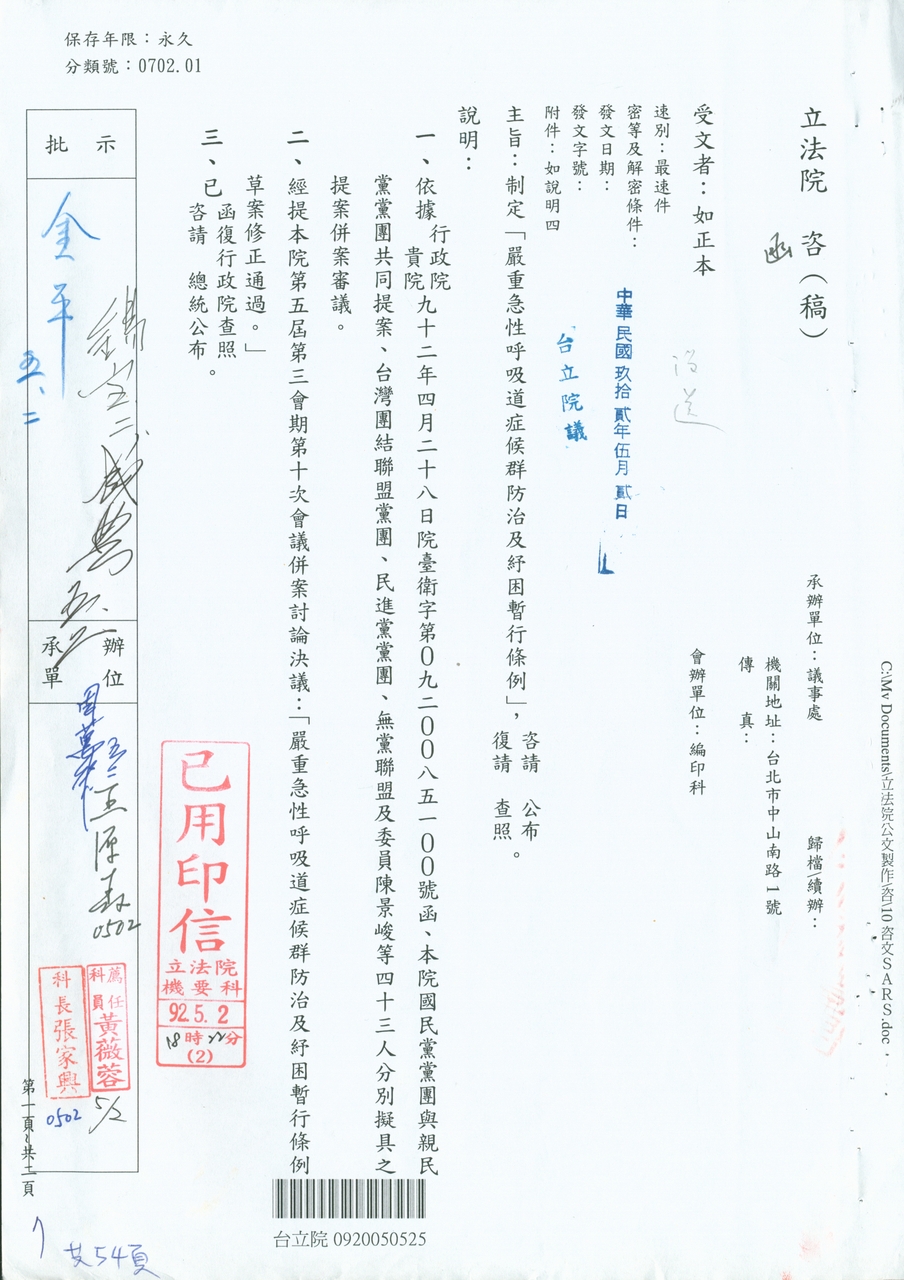 保存年限：永久
分類號：0702.01
立法院　咨（稿）
函
承辦單位：議事處
歸檔\續辦：
C:\My Documents\立法院公文製作\咨\10 咨文SARS.doc
機關地址：台北市中山南路1號
傳　　真：
受文者：如正本
會辦單位：編印科
速別：最速件
密等及解密條件：
發文日期：
中華民國玖拾貳年伍月貳日
發文字號：
台立院議
附件：如說明四
主旨：制定「嚴重急性呼吸道症候群防治及紓困暫行條例」，
咨請　公布
復請　查照。
說明：
一、依據
行政院
貴院
九十二年四月二十八日院臺衛字第０九二００八五一００號函、本院國民黨黨團與親民
黨黨團共同提案、台灣團結聯盟黨團、民進黨黨團、無黨聯盟及委員陳景峻等四十三人分別擬具之
提案併案審議。
二、經提本院第五屆第三會期第十次會議併案討論決議：「嚴重急性呼吸道症候群防治及紓困暫行條例
草案修正通過。」
三、已
函復行政院查照
咨請　總統公布
。
批示
金平
五、二
承辦單位
0502
已用印信
立法院
機要科
92.5.2
18時22分
(2)
薦任科員黃薇蓉
5/2
科長張家興
0502
台立院 0920050525
共54頁